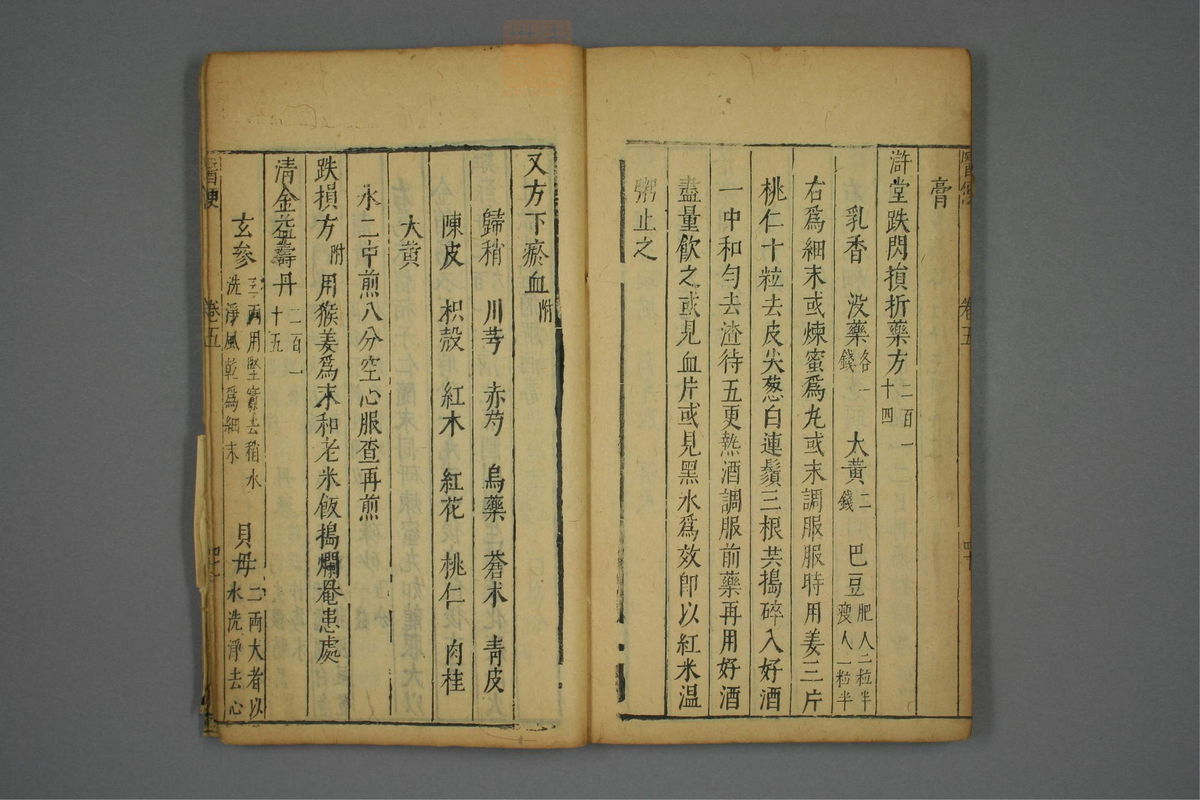 膏
滸堂跌閃損折藥方二百一十四
乳香 没藥各一錢 大黄二錢 巴豆肥人二粒半瘦人一粒半
右爲細末或煉蜜爲丸或末調服服時用姜三片
桃仁十粒去皮尖葱白連鬚三根共搗碎入好酒
一中和勻去渣待五更熱酒調服前藥再用好酒
盡量飲之或見血片或見黑水爲效即以紅米温
粥止之
又方下瘀血附
歸稍 川芎 赤芍 烏藥 蒼术 青皮
陳皮 枳殼 紅木 紅花 桃仁 肉桂
大黄
水二中煎八分空心服查再煎
跌損方附用猴姜爲末和老米飯搗爛罨患處
清金益壽丹二百一十五
玄參三兩用堅實去稍水洗淨風乾爲細末 貝母二兩大者以水洗淨去心
卷五
卷五